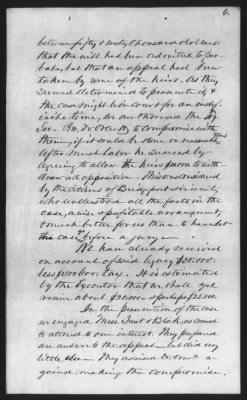 6
between fifty & sixty thousand dollars
that the will had been admitted to pro-
bate, but that an appeal had been
taken by some of the heirs. As they
seemed determined to prosecute it, &
the case might be in Court for an indef-
inite time, we authorized the
Sec. to compromise with
them, if it could be done on reasonable
After much labor he succeeded by
agreeing to allow the heirs to with-
draw all opposition. This was considered
by the citizens of Bridgeport & vicinity,
who understood all the facts in the
case, a wise & profitable arrangement,
& much better for us than to have let
the case go before a jury.
We have already received
on account of said legacy $
less Tax. It is estimated
by the Executor that we shall yet
receive about $3000. & perhaps $5000.
In the prosecution of the case
we engaged Messrs as counsel
to attend to our interest. They prepared
an answer to the appeal but did very
little else. They advised a-
gainst making the compromise.